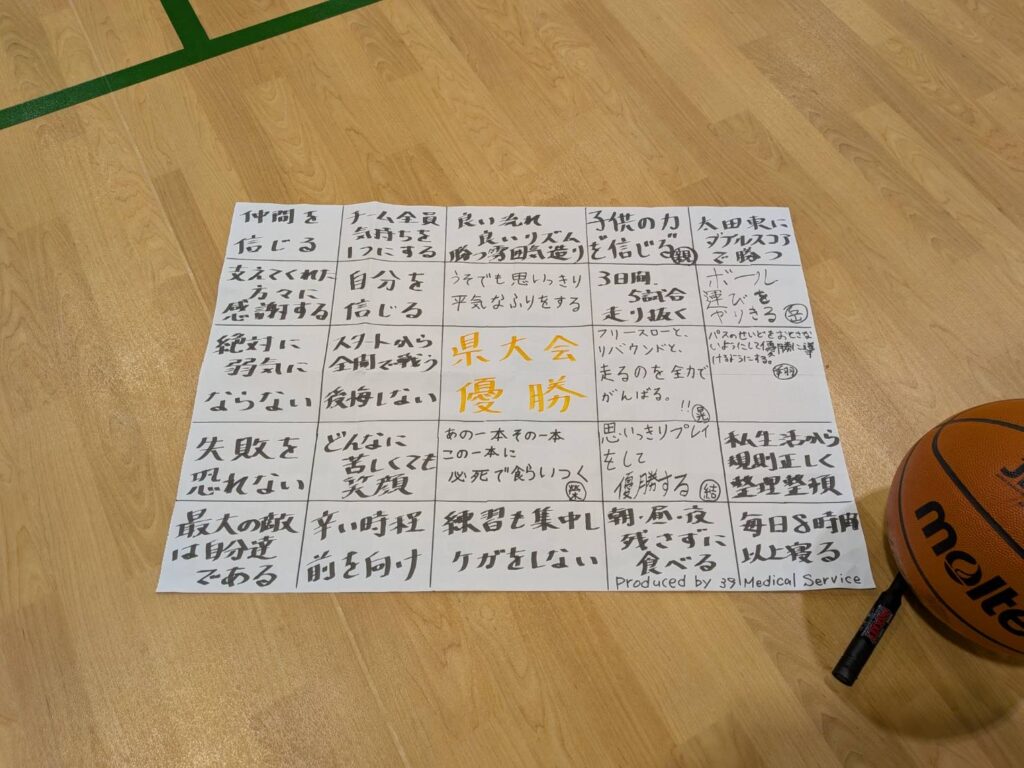 仲間を
信じる
チーム全員
気持ちを
1つにする
良い流れ
良いリズム
勝つ雰囲気造り
子供の力
を信じる 親
太田東に
ダブルスコア
で勝つ
支えてくれた
方々に
感謝する
自分を
信じる
うそでも思いっきり
平気なふりをする
3日間
5試合
走り抜く
ボール
運びを
やりきる 岳
絶対に
弱気に
ならない
スタートから
全開で戦う
後悔しない
県大会
優勝
フリースローと、
リバウンドと、
走るのを全力で
がんばる。
!! 晃
パスのせいどをおとさな
いようにして優勝に導
けるようにする。
翔
失敗を
恐れない
どんなに
苦しくても
笑顔
あの一本その一本
この一本に
必死で食らいつく
栞
思いっきりプレイ
をして
優勝する 結
私生活から
規則正しく
整理整頓
最大の敵
は自分達
である
辛い時程
前を向け
練習も集中し
ケガをしない
朝・昼・夜
残さずに
食べる
毎日8時間
以上寝る
Produced by 39 Medical Service
molte